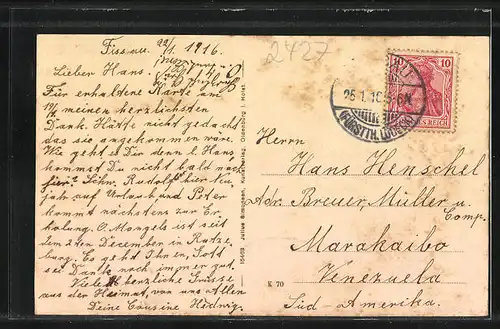 Fissau 22/1. 1916.
Lieber Hans.
Für erhaltene Karte am
19/1. meinen herzlichsten
Dank. Hätte nicht gedacht
das sie angekommen wäre.
Wie geht es Dir denn l. Hans,
kommst Du nicht bald nach
hier? Schw. Rudolf hier
jahr auf Urlaub und Peter
kommt nächstens zur Er-
holung. O. Mangels ist seit
dem 2ten Dezember in Ratze-
burg. Es geht Ihnen, Gott
sei Dank noch immer gut.
Viele herzliche Grüsse
aus der Heimat, von uns Allen
Deine Cousine Hedwig.
15662 Julius Simonsen, Oldenburg i. Holst.
2427
10 10
25.1.16
REICH
Herrn
Hans Henschel
Adr. Breuer, Müller u.
Comp.
Marakaibo
Venezuela
Süd-Amerika.
K 70